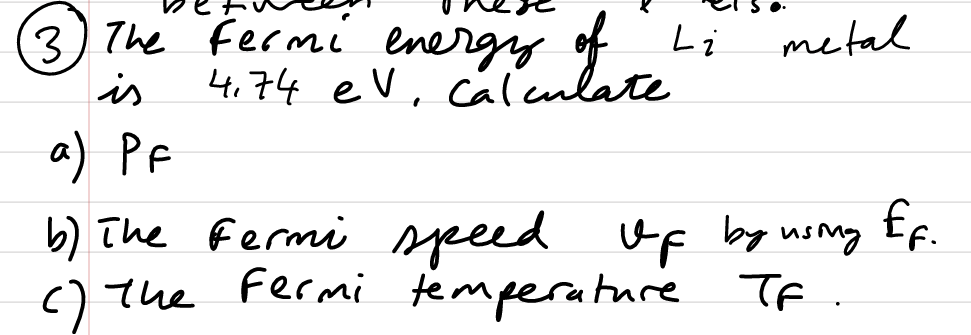 between these
③ The Fermi energy of Li metal
is 4.74 eV. Calculate
a) PF
b) The Fermi speed vF by using EF.
c) The Fermi temperature TF.